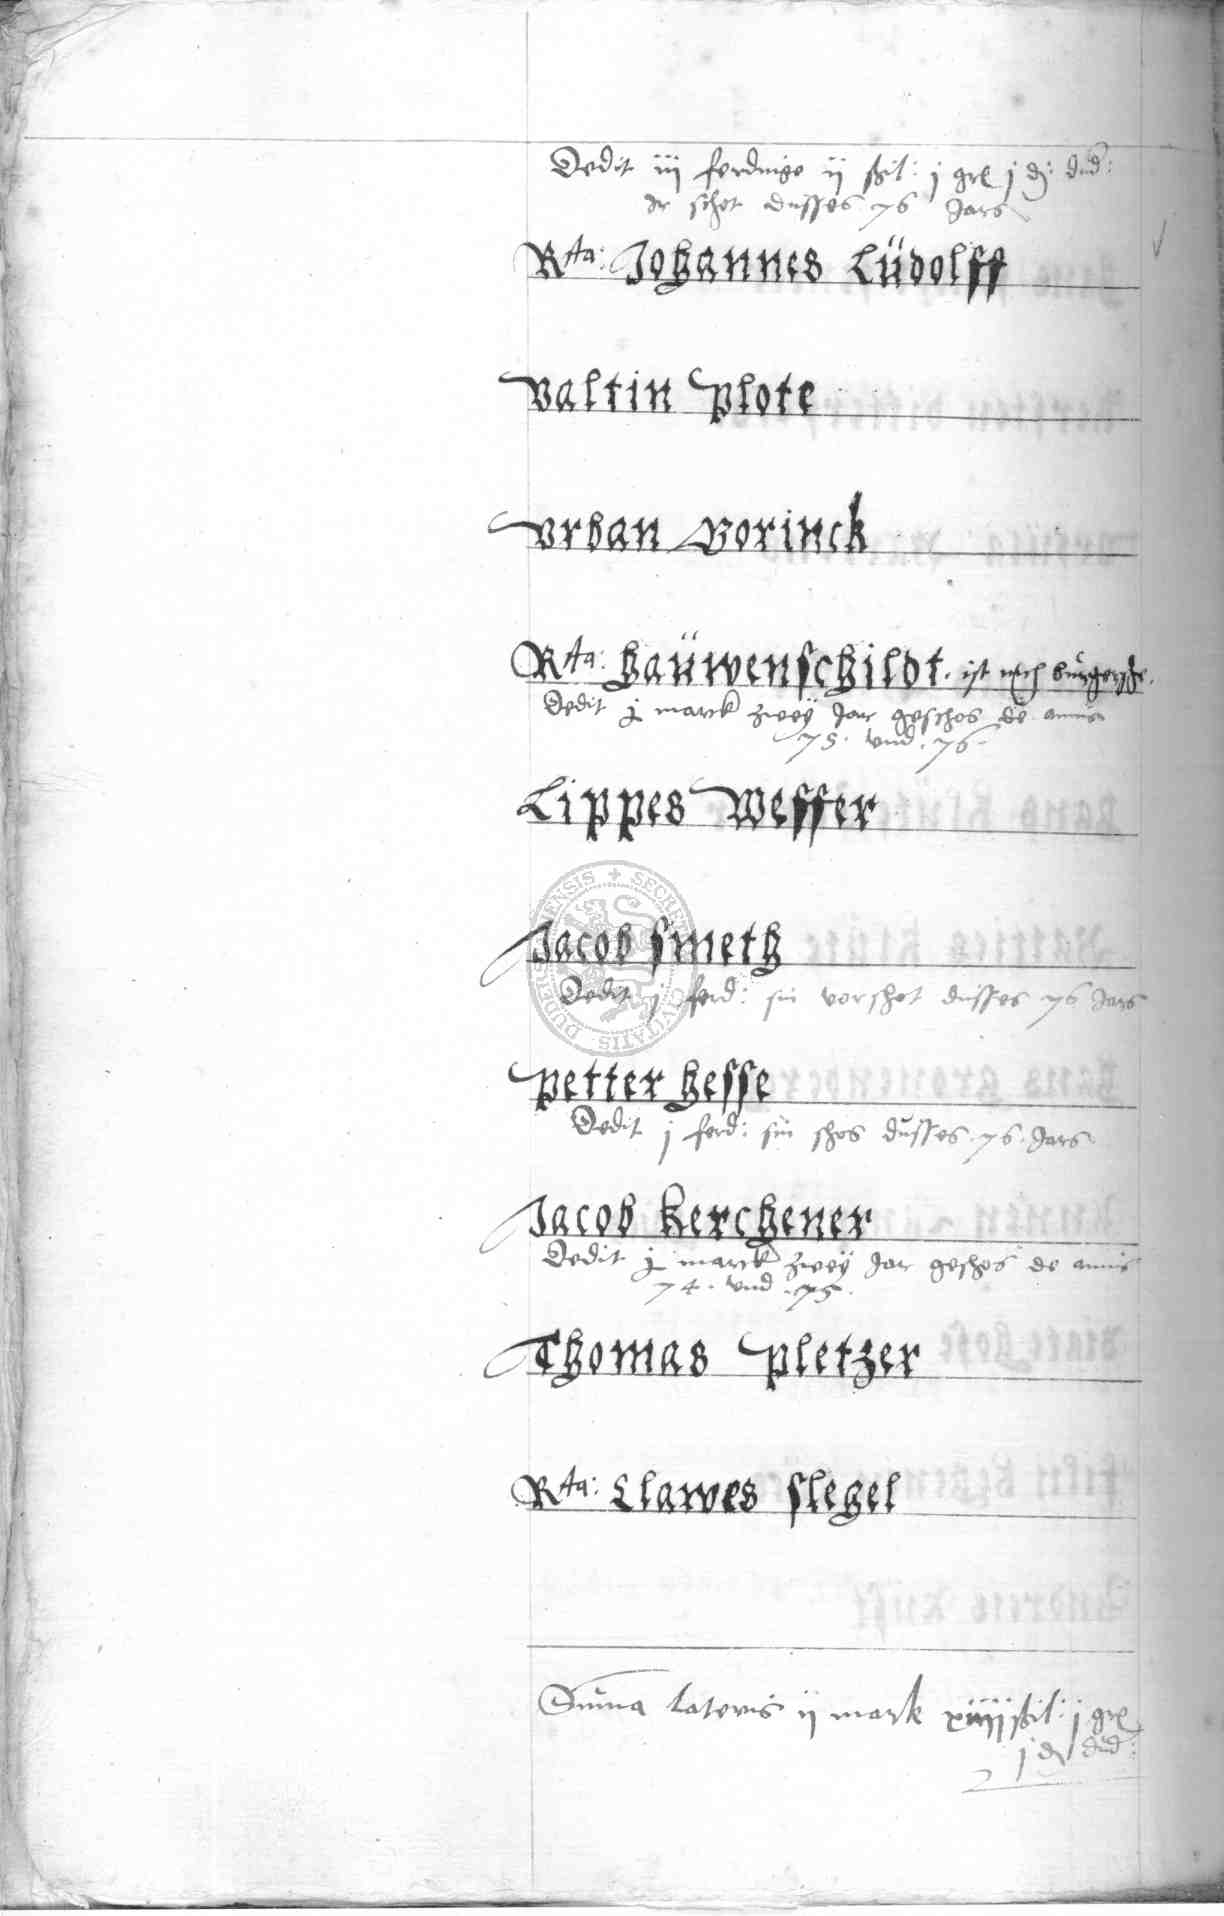 Dedit iij ferdinge ij ßil: j grl j d: dud:
ir schot dusses 76 Jars
Rta: Johannes Lüdolff
Valtin Plote
Vrban Borinck
Rta: Haüwenschildt. ist nich bürger
Dedit j marck zweÿ Jar geschos de annis
75. vnd. 76.
Lippes Weffer
Jacob Smeth
Dedit j ferd: sin vorschot dusses 76 Jars
Petter Hesse
Dedit j ferd: sin schos dusses. 76. Jars
Jacob Kerchener
Dedit j marck zweÿ Jar geschos de annis
74. vnd. 75.
Thomas Pletzer
Rta: Clawes Slegel
Suma lateris ij mark xiiij ßil: j grl
j d dud:
SECRETUM CIVITATIS DUDERSTADENSIS